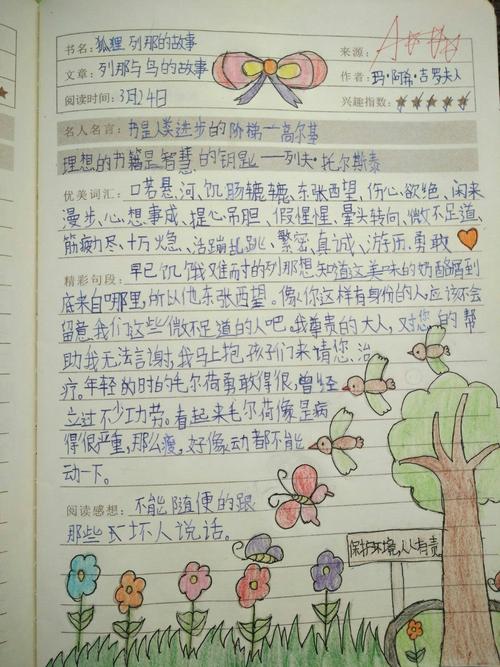 书名：狐狸列那的故事
来源：
文章：列那与鸟的故事
作者：玛·阿希·吉罗夫人
阅读时间：3月24日
兴趣指数：★★★★★
名人名言：书是人类进步的阶梯—高尔基
理想的书籍是智慧的钥匙——列夫·托尔斯泰
优美词汇：口若悬河、饥肠辘辘、东张西望、伤心欲绝、闲来
漫步、心想事成、提心吊胆、假惺惺、晕头转向、微不足道、
筋疲力尽、十万火急、活蹦乱跳、繁密、真诚、游历、勇敢
精彩句段：早已饥饿难耐的列那想知道这美味的奶酪到
底来自哪里，所以他东张西望。像你这样有身份的人应该不会
留意我们这些微不足道的人吧。我尊贵的大人，对您的帮
助我无法言谢，我马上抱孩子们来请您治
疗。年轻的时的毛尔荷勇敢得很，曾经
立过不少功劳。看起来毛尔荷像是病
得很严重，那么瘦，好像动都不能
动一下。
阅读感想：不能随便的跟
那些坏人说话。
保护环境，人人有责